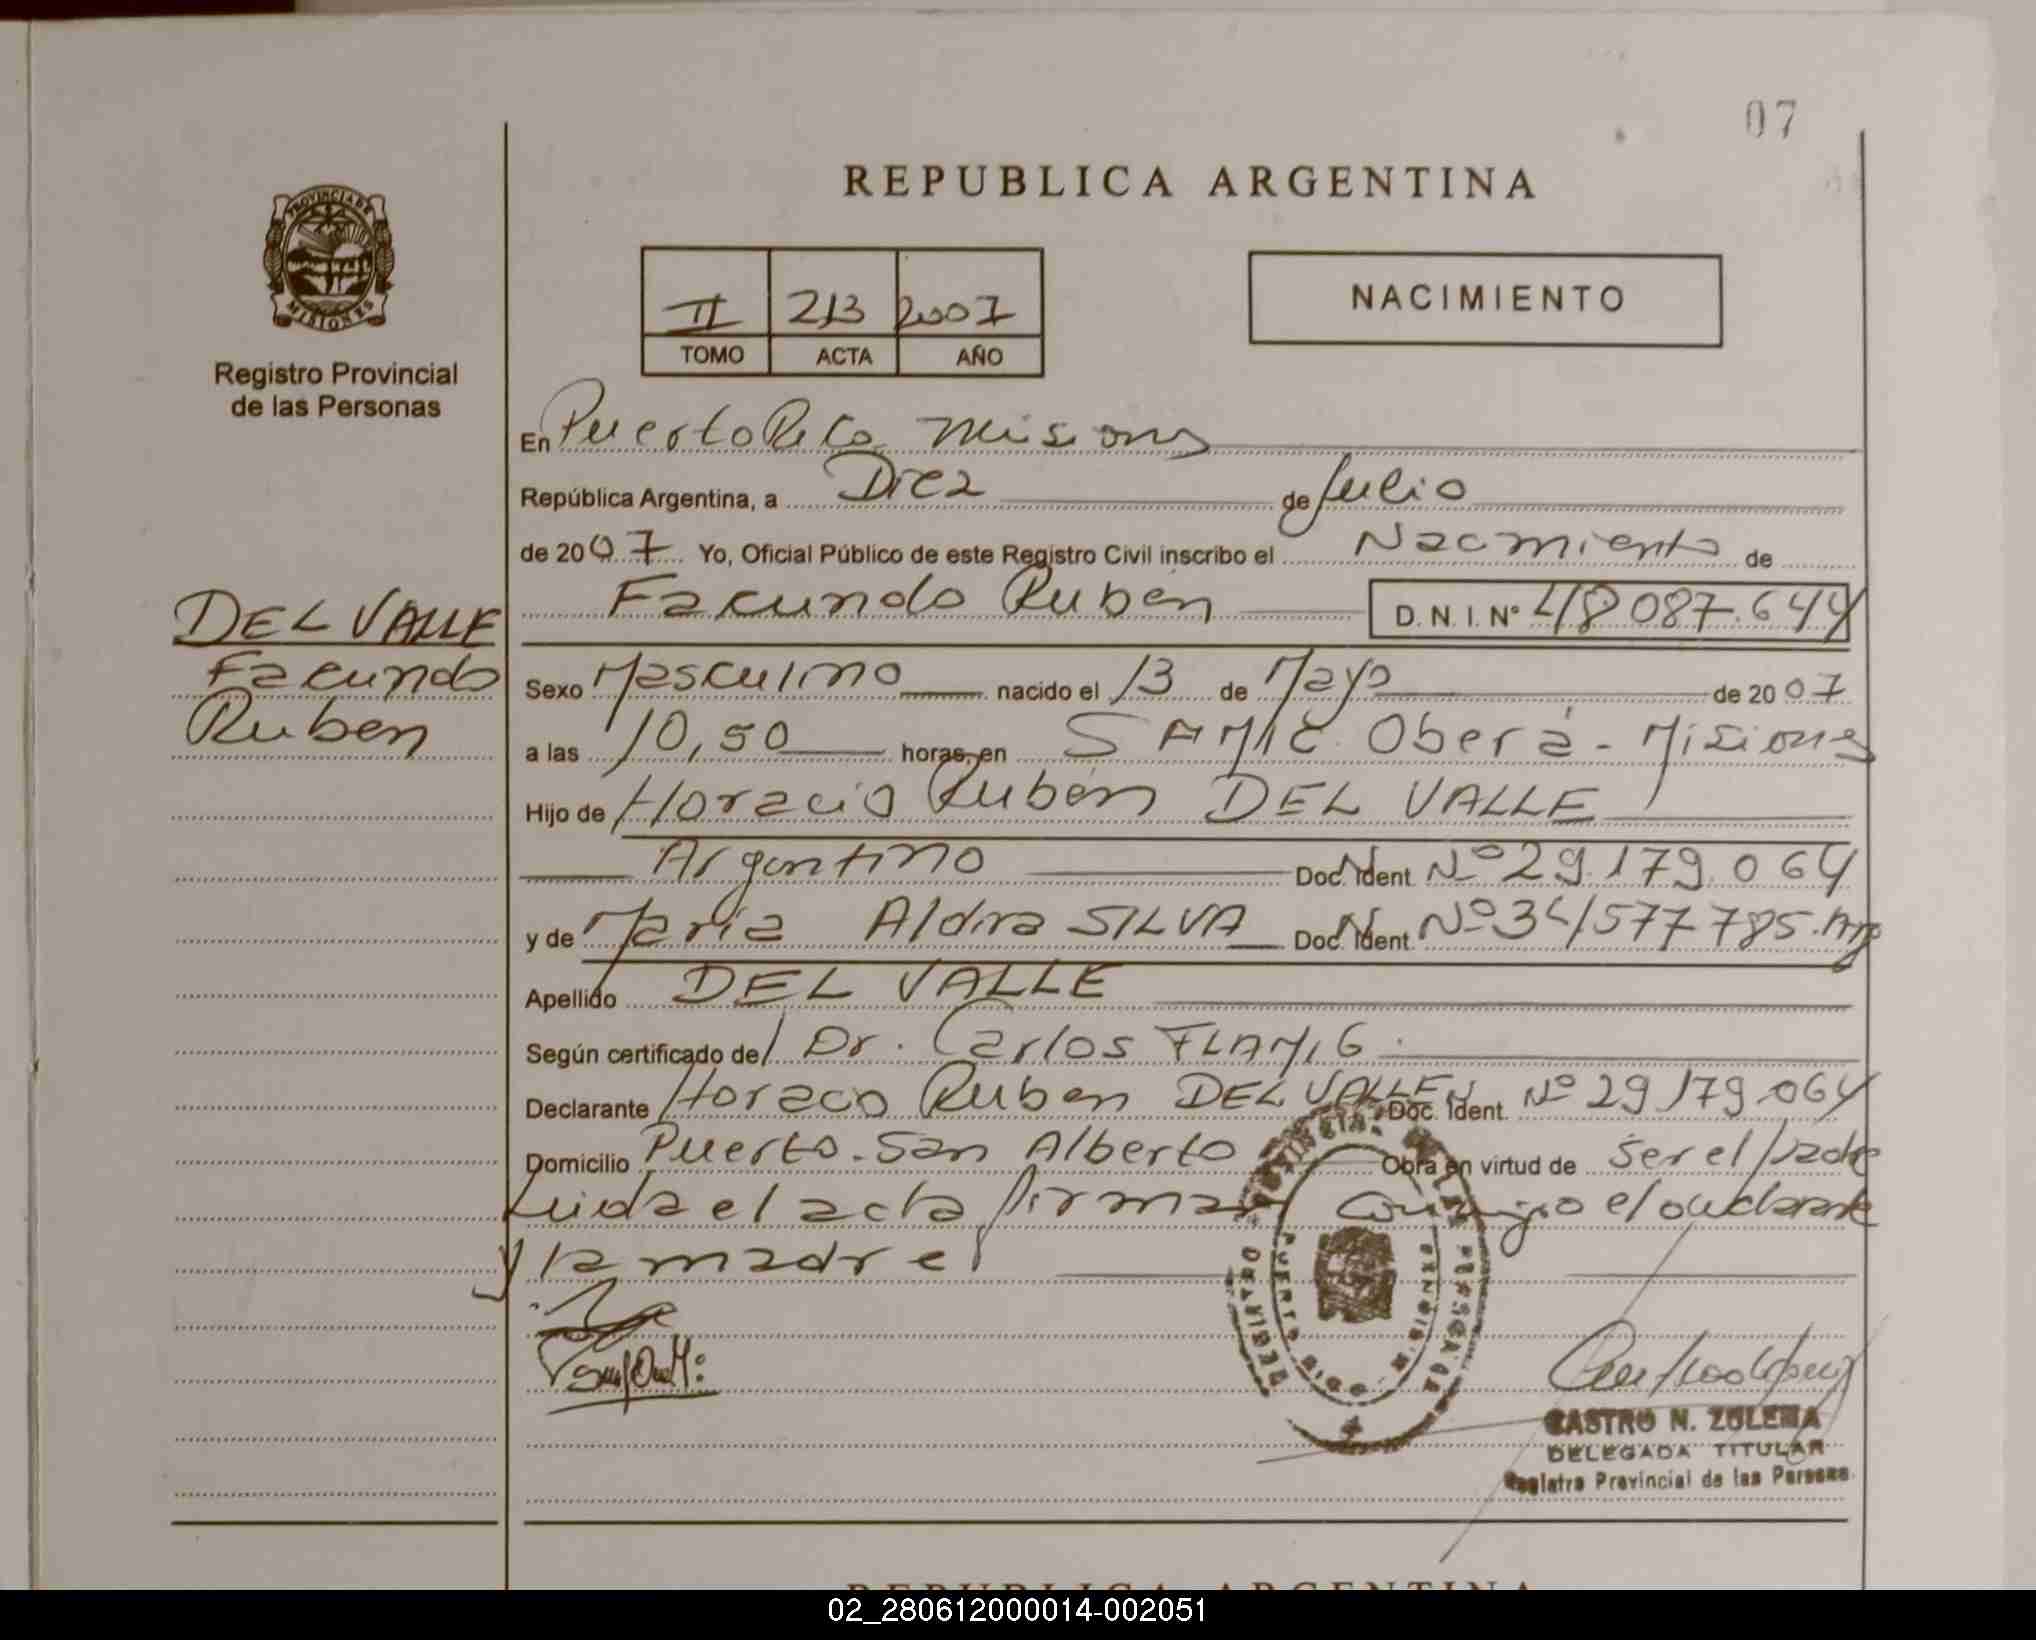 07
REPUBLICA ARGENTINA
PROVINCIA DE
MISIONES
Registro Provincial
de las Personas
II 213 2007
TOMO ACTA AÑO
NACIMIENTO
En Puerto Rico Misiones
República Argentina, a Diez de Julio
de 2007 Yo, Oficial Público de este Registro Civil inscribo el Nacimiento de
Facundo Ruben D.N.I. Nº 48 087.644
DEL VALLE
Facundo
Ruben
Sexo Masculino nacido el 13 de Mayo de 2007
a las 10,50 horas, en SAMIC Oberá - Misiones
Hijo de Horacio Rubén DEL VALLE
Argentino Doc. Ident. Nº 29.179.064
y de María Aldira SILVA Doc. Ident. Nº 34577785. Arg
Apellido DEL VALLE
Según certificado del Dr. Carlos FLAMIG
Declarante Horacio Ruben DEL VALLE Doc. Ident. Nº 29179.064
Domicilio Puerto San Alberto Obra en virtud de ser el Padre
Leida el acta firman Conmigo el declarante
y la madre
CASTRO N. ZULEMA
DELEGADA TITULAR
Registro Provincial de las Personas
REPUBLICA ARGENTINA
02_280612000014-002051